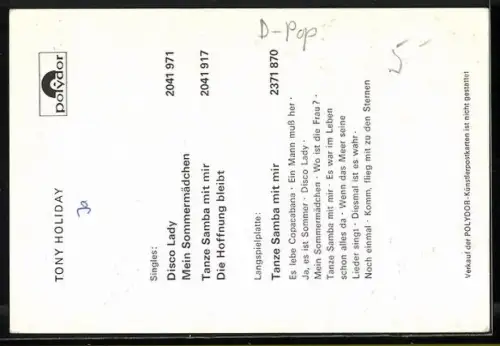 D-Pop
5,-
polydor
TONY HOLIDAY
Ja
Singles:
Disco Lady 2041 971
Mein Sommermädchen
Tanze Samba mit mir 2041 917
Die Hoffnung bleibt
Langspielplatte:
Tanze Samba mit mir 2371 870
Es lebe Copacabana · Ein Mann muß her ·
Ja, es ist Sommer · Disco Lady ·
Mein Sommermädchen · Wo ist die Frau? ·
Tanze Samba mit mir · Es war im Leben
schon alles da · Wenn das Meer seine
Lieder singt · Diesmal ist es wahr ·
Noch einmal · Komm, flieg mit zu den Sternen
Verkauf der POLYDOR-Künstlerpostkarten ist nicht gestattet